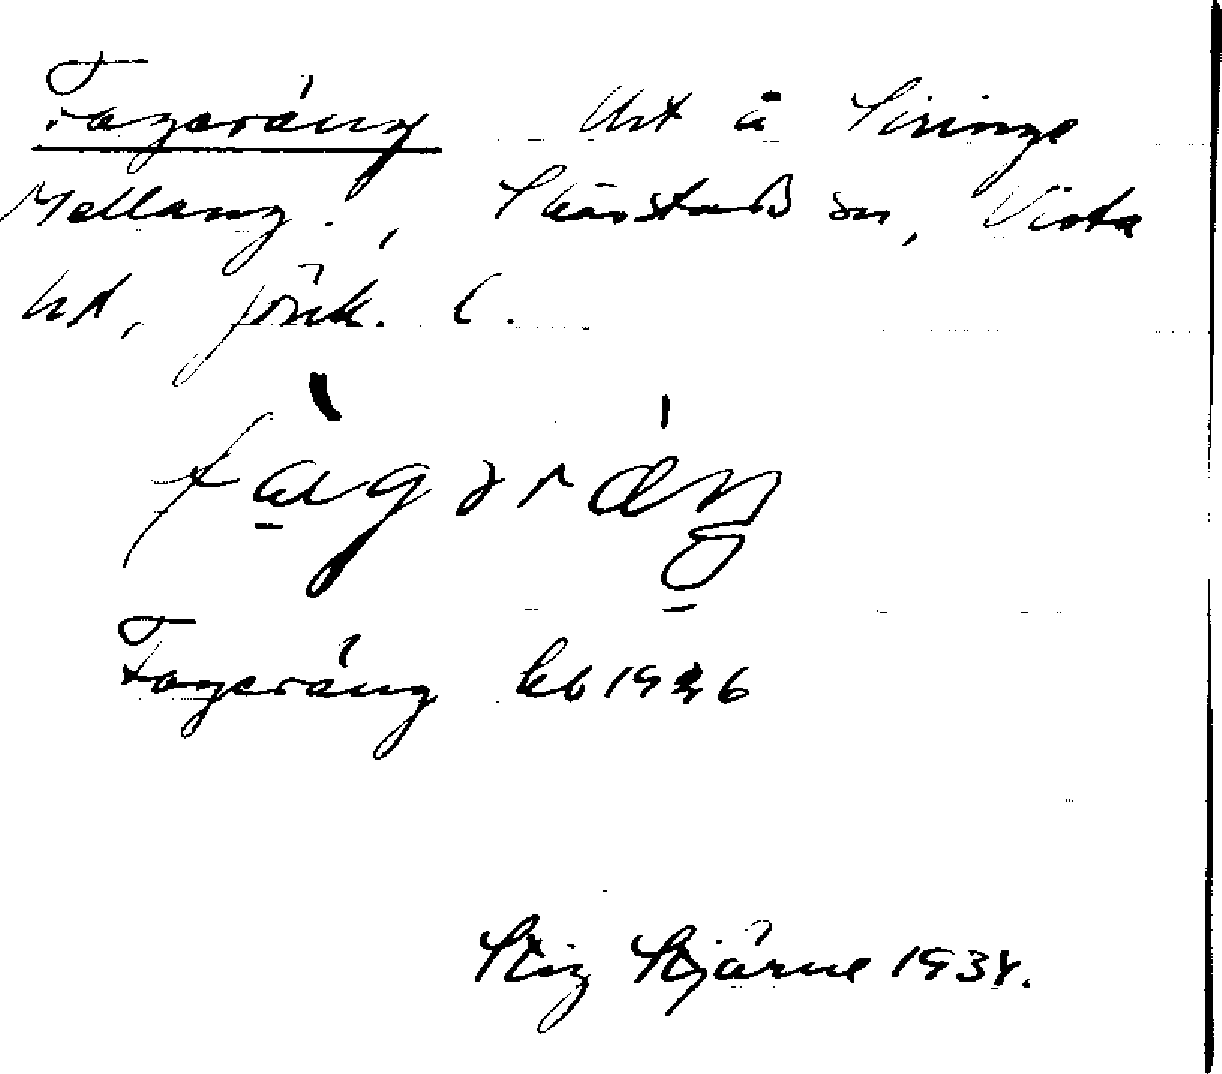 Fageräng Urt å Siringe
Mellang., Skärstad sn, Vista
hd, Jönk. l.
fàgəräŋ
Fageräng kb 1946
Stig Stjärne 1934.